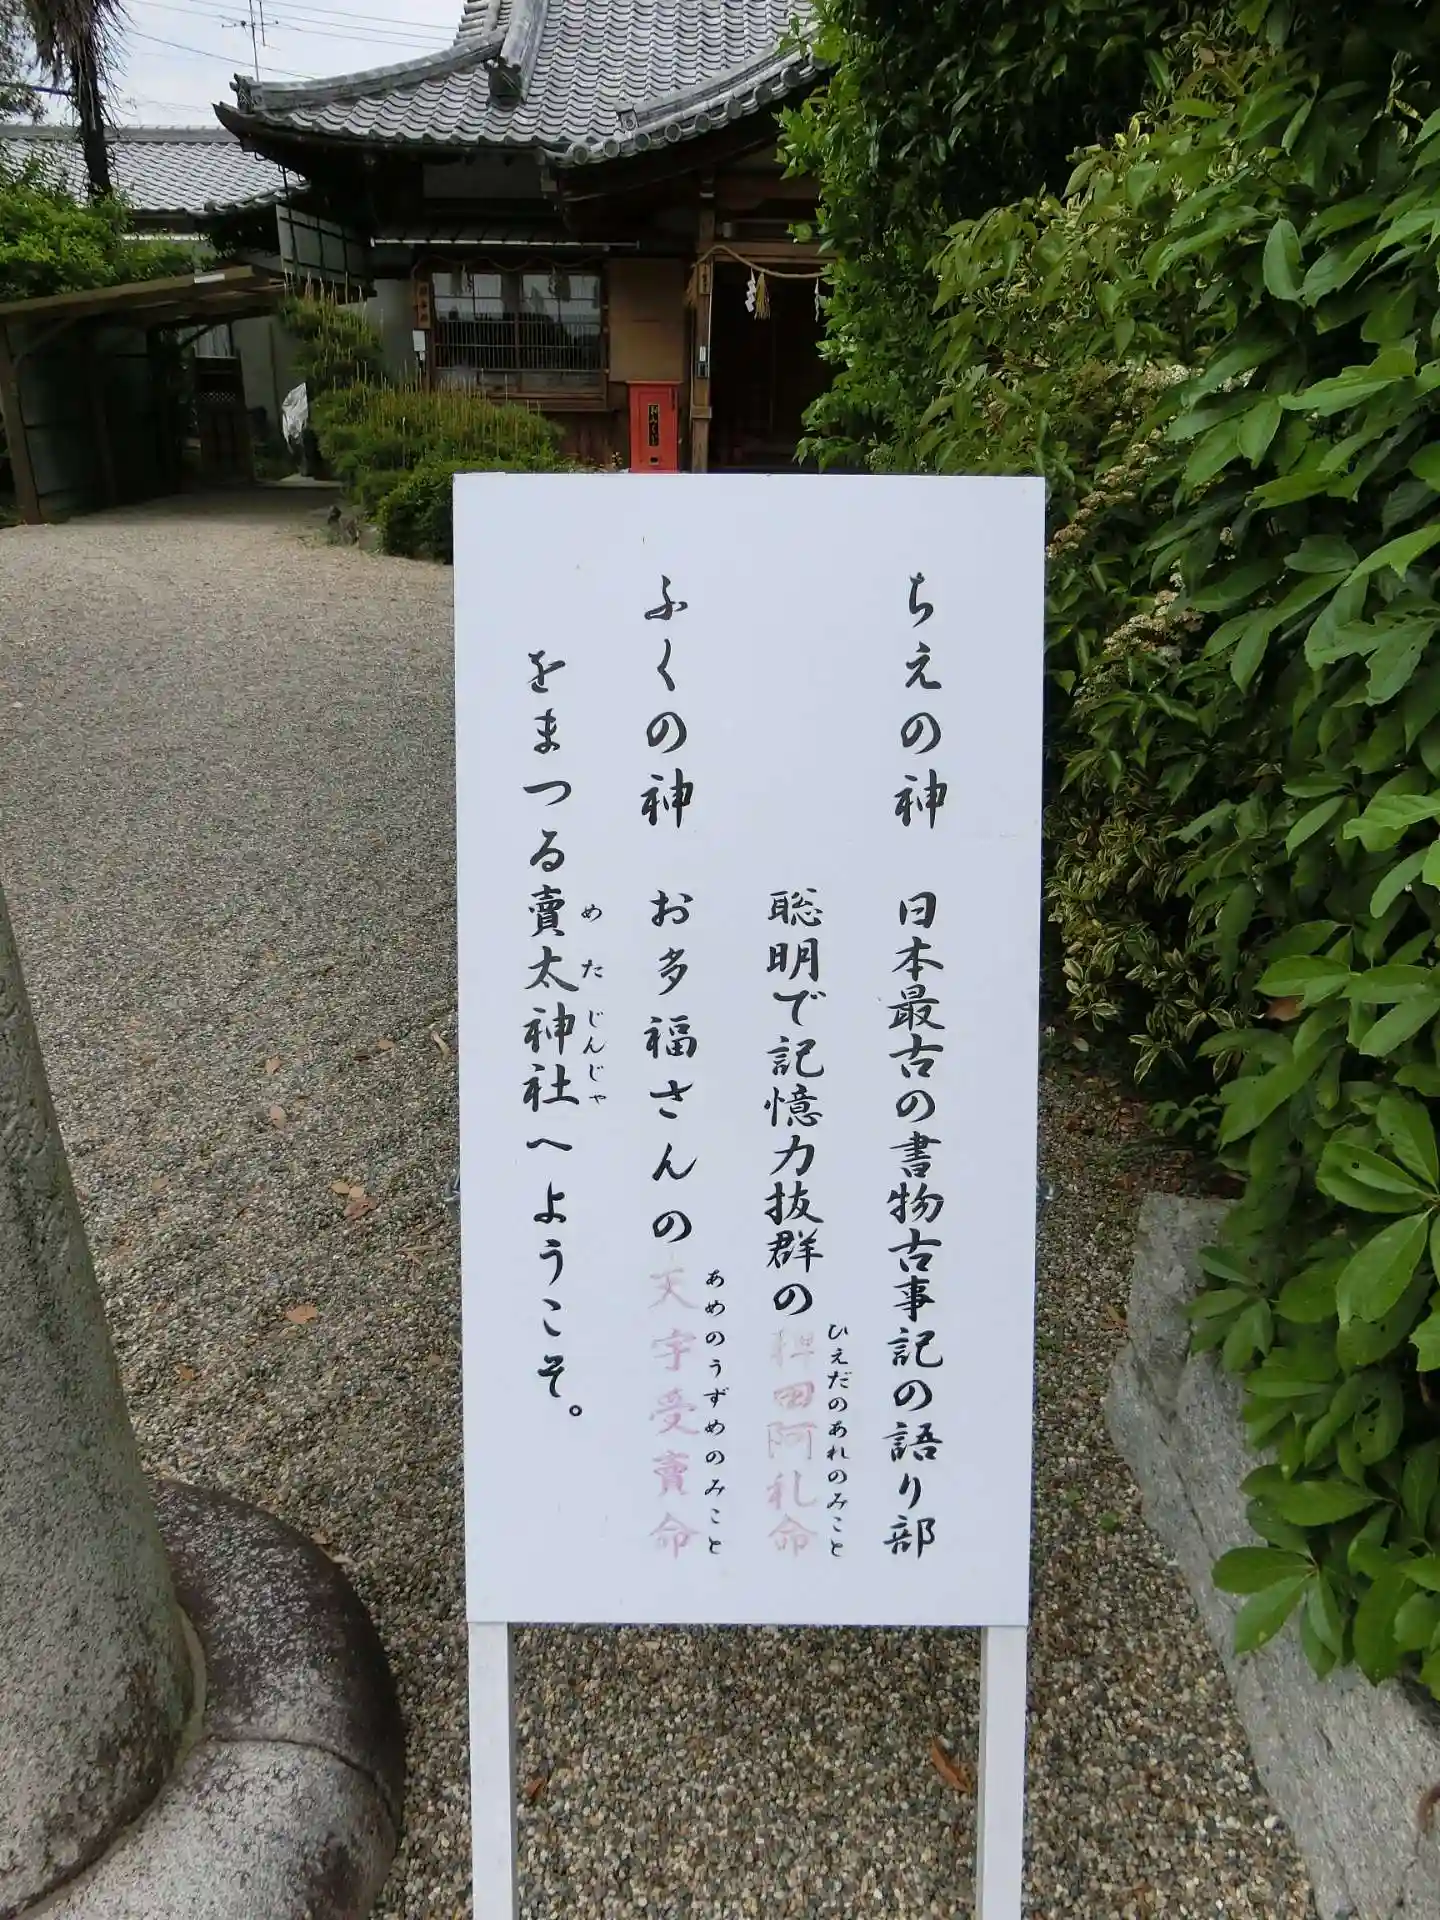 ちえの神 日本最古の書物古事記の語り部
聡明で記憶力抜群の稗田阿礼命
ひえだのあれのみこと
ふくの神 お多福さんの天宇受賣命
あめのうずめのみこと
をまつる賣太神社へようこそ。
めたじんじゃ